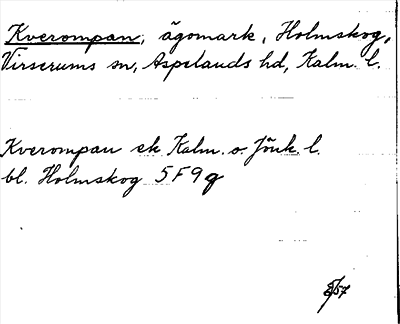 Kverompan, ägomark, Holmskog,
Virserums sn, Aspelands hd, Kalm. l.
Kverompan ek Kalm. o. Jönk. l.
bl. Holmskog 5F9g